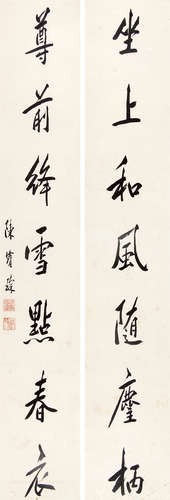 坐上和風隨麈柄
尊前絳雪點春衣
陳寶琛